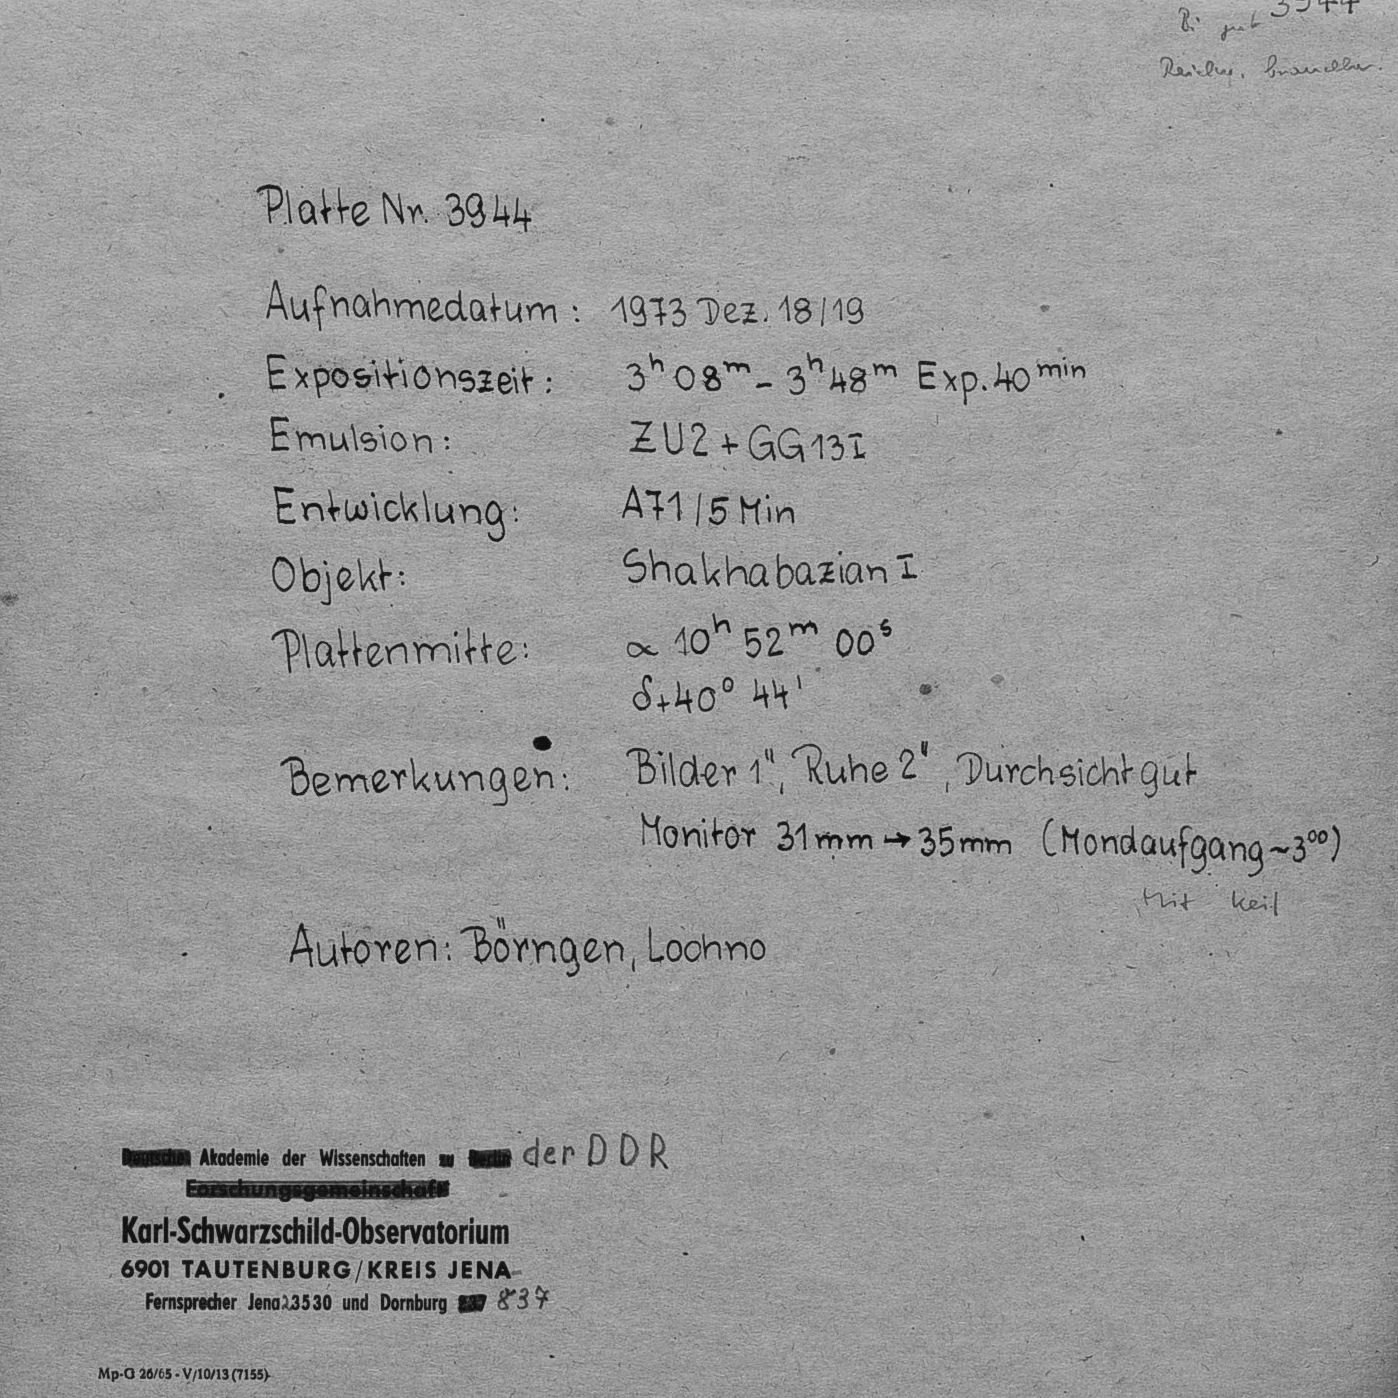 3944
Platte Nr. 3944
Aufnahmedatum: 1973 Dez. 18/19
Expositionszeit: 3ʰ 08ᵐ - 3ʰ 48ᵐ Exp. 40 ᵐⁱⁿ
Emulsion: ZU2 + GG13 I
Entwicklung: A71 / 5 Min
Objekt: Shakhabazian I
Plattenmitte: α 10ʰ 52ᵐ 00ˢ
δ +40° 44'
Bemerkungen: Bilder 1", Ruhe 2", Durchsicht gut
Monitor 31mm → 35mm (Mondaufgang ~ 3⁰⁰)
Mit Keil
Autoren: Börngen, Lochno
Deutsche Akademie der Wissenschaften zu Berlin der DDR
Forschungsgemeinschaft
Karl-Schwarzschild-Observatorium
6901 TAUTENBURG/KREIS JENA
Fernsprecher Jena 23530 und Dornburg 837
Mp-G 26/65 - V/10/13 (7155)